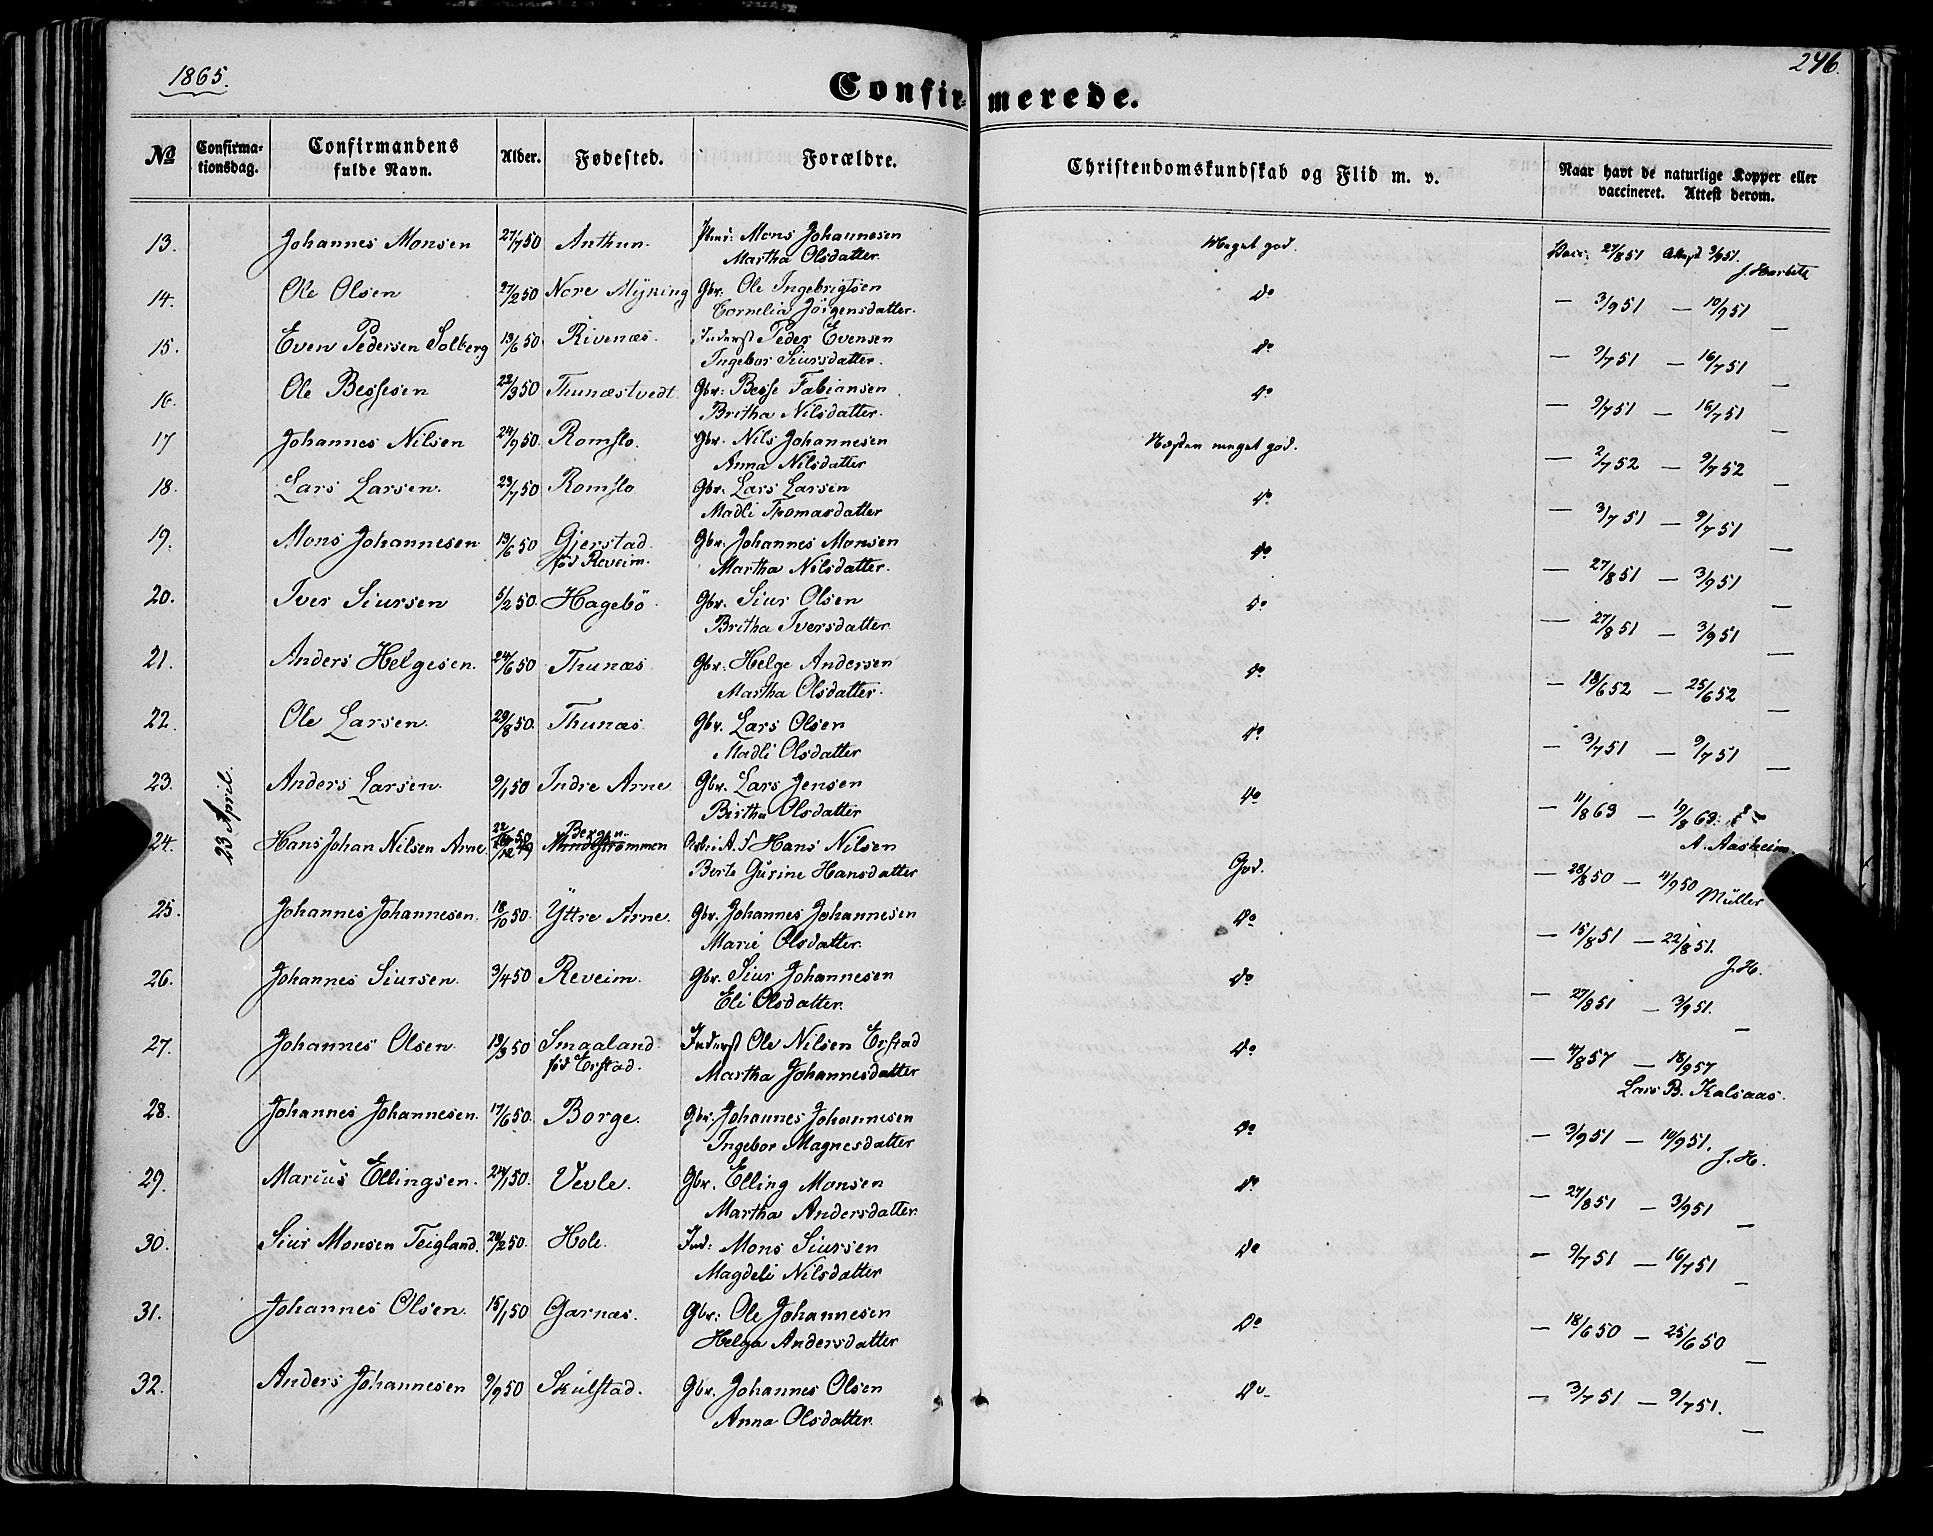 1865.
246.
Confirmerede.
No
Confirmationsdag.
Confirmandens fulde Navn.
Alder.
Fødested.
Forældre.
Christendomskundskab og Flid m. v.
Naar havt de naturlige Kopper eller vaccineret. Attest derom.
23 April.
13. Johannes Monsen 27/7 50 Anthun. Mons Johannesen Meget god. Vacc. 27/8 51 Attest 3/9 51.
Martha Olsdatter.
14. Ole Olsen 27/2 50 Nore Myking Gbr. Ole Ingebrigtsen Do — 3/9 51 — 10/9 51
Cornelia Jörgensdatter. —
15. Even Pedersen Solberg 13/6 50 Rivenæs. Inderst Peder Evensen Do — 9/7 51 — 16/7 51
Ingebor Siursdatter. —
16. Ole Bessesen 22/3 50 Thunæstvedt Gbr: Besse Fabiansen Do — 9/7 51 — 16/7 51
Britha Nilsdatter. —
17 Johannes Nilsen 24/9 50 Romslo. Gbr. Nils Johannesen Næsten meget god. — 2/7 52 — 9/7 52
Anna Nilsdatter —
18. Lars Larsen. 23/7 50 Romslo Gbr. Lars Larsen Do — 3/7 51 — 9/7 51
Madli Thomasdatter —
19. Mons Johannesen 13/6 50 Gjerstad Gbr. Johannes Monsen Do — 27/8 51 — 3/9 51
fød Reveim. Martha Nilsdatter. —
20. Iver Siursen 5/2 50 Hagebö Gbr. Siur Olsen Do — 27/8 51 — 3/9 51
Britha Iversdatter —
21. Anders Helgesen. 24/6 50 Thunæs Gbr. Helge Andersen Do — 18/6 52 — 25/6 52
Martha Olsdatter. —
22. Ole Larsen. 29/8 50. Thunæs. Gbr. Lars Olsen Do — 3/7 51 — 9/7 51
Madli Olsdatter —
23. Anders Larsen. 9/1 50 Indre Arne Gbr. Lars Jensen Do — 11/8 63 — 19/8 63.
Britha Olsdatter A. Aasheim.
24. Hans Johan Nilsen Arne Bergen Hans Nilsen God. — 28/8 50 — 4/9 50
Berte Gurine Hansdatter Müller
25. Johannes Johannesen. 18/10 50. Yttre Arne. Gbr. Johannes Johannesen Do — 15/8 51 — 22/8 51.
Marie Olsdatter. J.H.
26. Johannes Siursen. 3/4 50 Reveim. Gbr. Siur Johannesen Do — 27/8 51 — 3/9 51.
Eli Olsdatter. —
27. Johannes Olsen 13/3 50 Smaaland. Inderst Ole Nilsen Erstad Do — 4/8 57 — 18/9 57
fød Erstad. Martha Johannesdatter Lars B. Kalsaas.
28. Johannes Johannesen. 17/6 50. Borge. Gbr. Johannes Johannesen Do — 3/9 51 — 10/9 51.
Ingebor Magnesdatter J.H.
29. Marius Ellingsen. 24/1 50. Vevle. Gbr. Elling Monsen Do — 27/8 51 — 3/9 51
Martha Andersdatter —
30. Siur Monsen Teigland. 28/2 50. Hole. Ind: Mons Siursen Do — 9/7 51 — 16/7 51
Magdeli Nilsdatter —
31. Johannes Olsen. 15/1 50 Garnæs. Gbr: Ole Johannesen Do — 18/6 50 — 25/6 50
Helga Andersdatter —
32. Anders Johannesen 9/9 50 Skulstad. Gbr. Johannes Olsen Do — 3/7 51 — 9/7 51.
Anna Olsdatter —